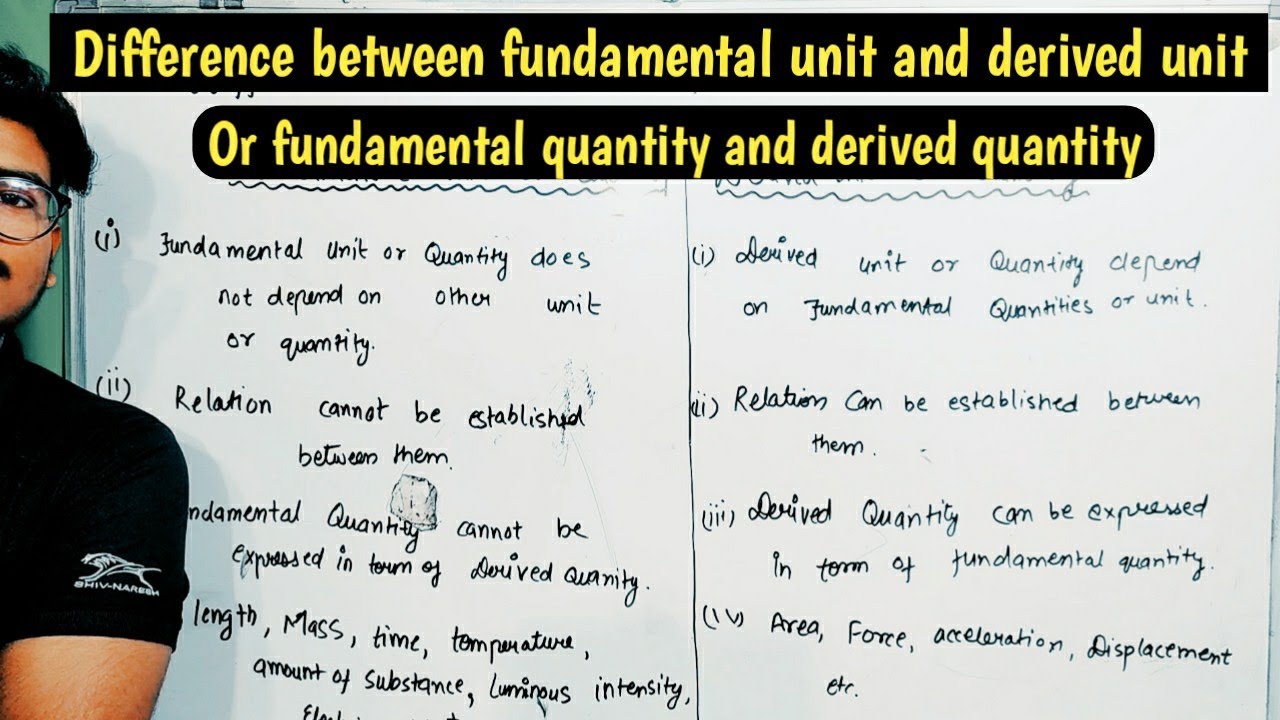 Difference between fundamental unit and derived unit
Or fundamental quantity and derived quantity
(i) Fundamental unit or Quantity does
not depend on other unit
or quantity.
(ii) Relation cannot be established
between them.
ndamental Quantity cannot be
expressed in term of Derived Quanity.
length, Mass, time, temperature,
amount of substance, Luminous intensity,
(i) Derived unit or Quantity depend
on Fundamental Quantities or unit.
(ii) Relation Can be established between
them.
(iii) Derived Quantity can be expressed
in term of fundamental quantity.
(iv) Area, Force, acceleration, Displacement
etc.
SHIV-NARESH